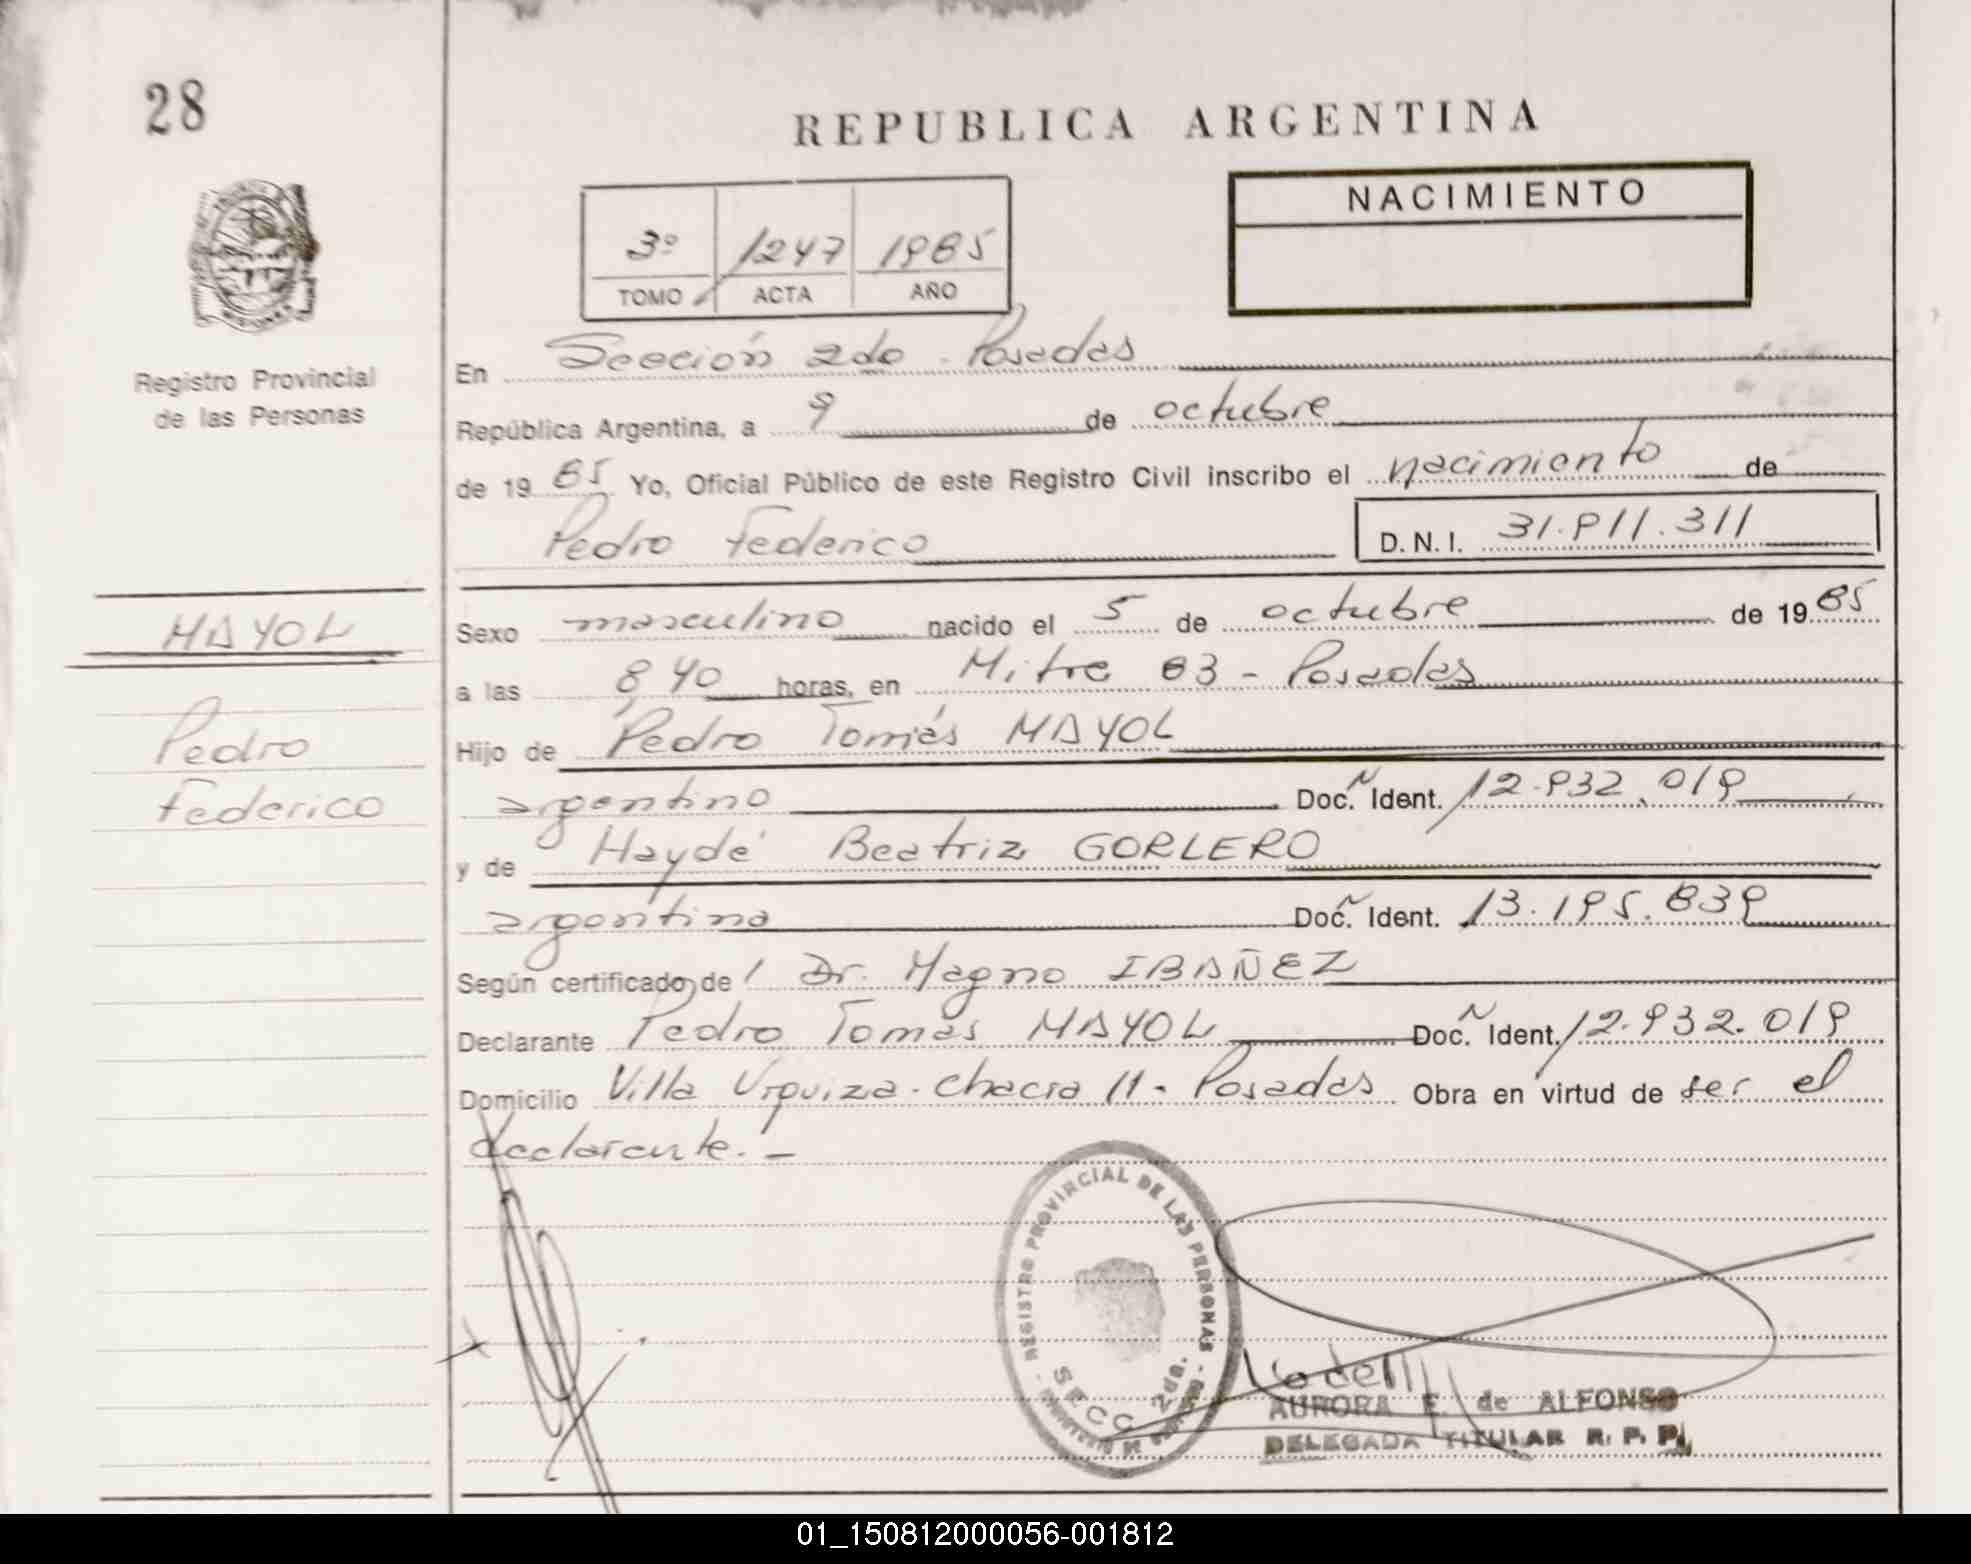 28
REPUBLICA ARGENTINA
NACIMIENTO
3º 1247 1985
TOMO ACTA AÑO
Registro Provincial
de las Personas
En Sección 2da - Posadas
República Argentina, a 9 de octubre
de 19 85 Yo, Oficial Público de este Registro Civil inscribo el nacimiento de
Pedro Federico D.N.I. 31.911.311
MAYOL
Pedro
Federico
Sexo masculino nacido el 5 de octubre de 19 85
a las 8,40 horas, en Mitre 83 - Posadas
Hijo de Pedro Tomás MAYOL
argentino Doc. Ident. 12.932.019
y de Haydé Beatriz GORLERO
argentina Doc. Ident. 13.195.839
Según certificado de l Dr. Magno IBAÑEZ
Declarante Pedro Tomás MAYOL Doc. Ident. 12.932.019
Domicilio Villa Urquiza - Chacra 11 - Posadas Obra en virtud de ser el
declarante. -
REGISTRO PROVINCIAL DE LAS PERSONAS
SECC 2da.
AURORA E. de ALFONSO
DELEGADA TITULAR R. P. P.
01_150812000056-001812